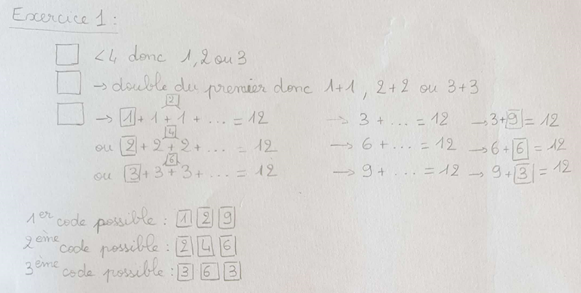 Exercice 1 :
<4 donc 1, 2 ou 3
→ double du premier donc 1+1, 2+2 ou 3+3
2
→ 1 + 1 + 1 + ... = 12 → 3 + ... = 12 → 3 + 9 = 12
4
ou 2 + 2 + 2 + ... = 12 → 6 + ... = 12 → 6 + 6 = 12
6
ou 3 + 3 + 3 + ... = 12 → 9 + ... = 12 → 9 + 3 = 12
1er code possible : 1 2 9
2ème code possible : 2 4 6
3ème code possible : 3 6 3